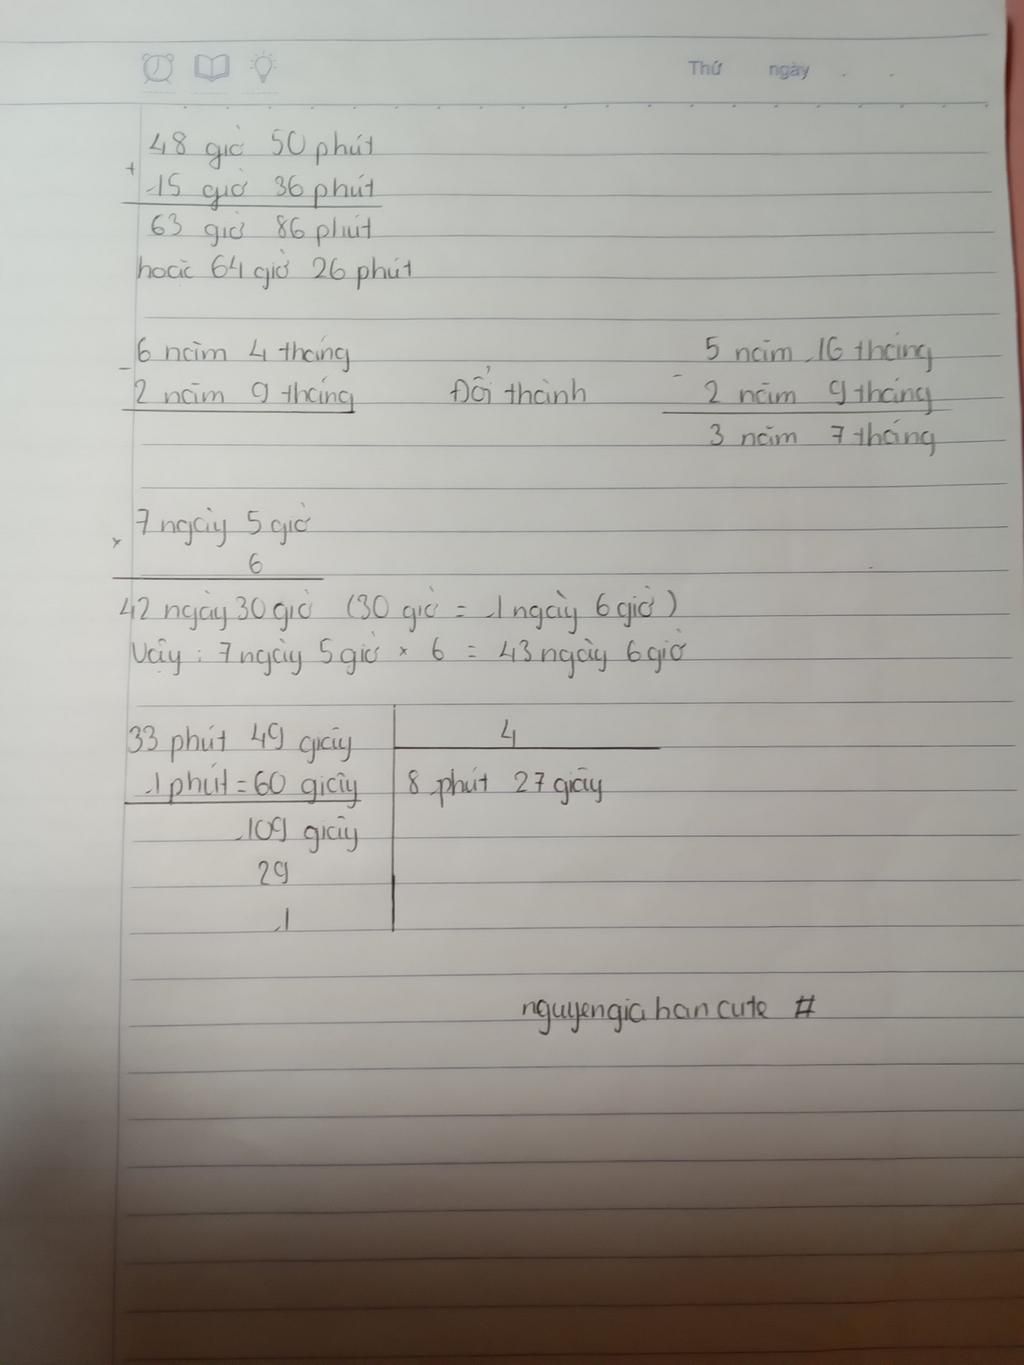 Thứ ngày . .
48 giờ 50 phút
+
15 giờ 36 phút
63 giờ 86 phút
hoặc 64 giờ 26 phút
6 năm 4 tháng 5 năm 16 tháng
- Đổi thành -
2 năm 9 tháng 2 năm 9 tháng
3 năm 7 tháng
7 ngày 5 giờ
×
6
42 ngày 30 giờ (30 giờ = 1 ngày 6 giờ)
Vậy : 7 ngày 5 giờ × 6 = 43 ngày 6 giờ
33 phút 49 giây 4
1 phút = 60 giây 8 phút 27 giây
109 giây
29
1
nguyengiahancute #